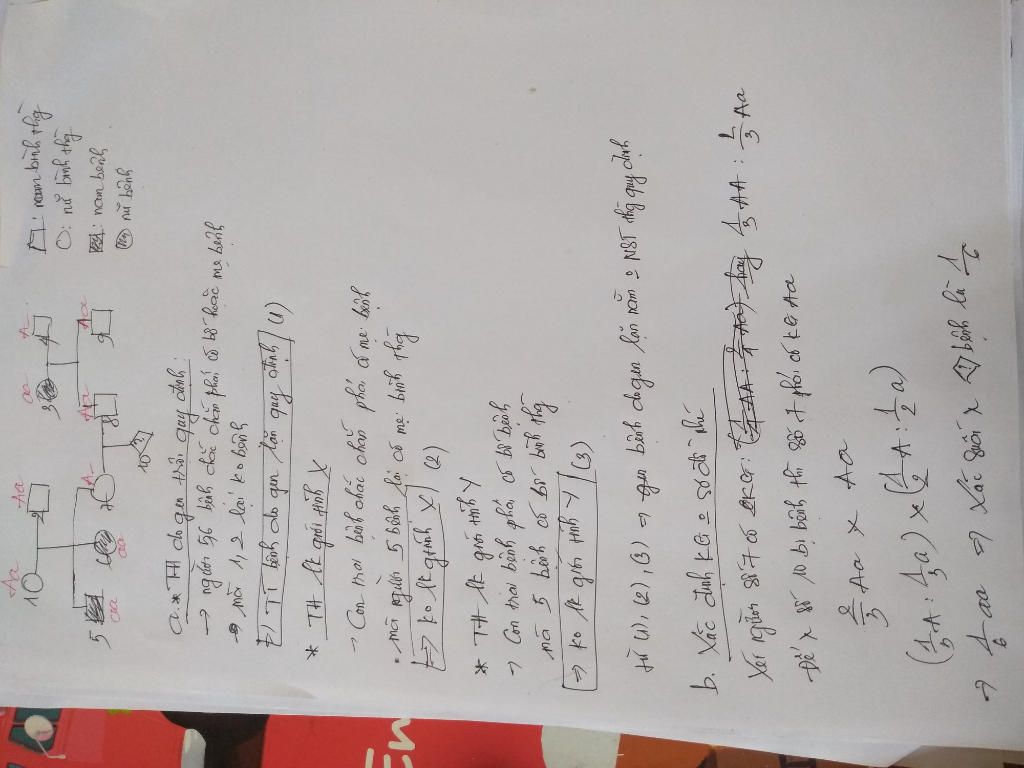 □: nam bình thg
○: nữ bình thg
: nam bệnh
: nữ bệnh
Aa Aa aa A-
1 2 3 4
A- Aa Aa
5 6 7 8 9
aa aa
10
a. * TH do gen trội quy định:
→ người 5,6 bệnh chắc chắn phải có bố hoặc mẹ bệnh
mà 1, 2 lại ko bệnh
⇒ Tí bệnh do gen lặn quy định (1)
* TH lk giới tính X
→ Con trai bệnh chắc chắn phải có mẹ bệnh
• mà người 5 bệnh lại có mẹ bình thg
⇒ ko lk gtính X (2)
* TH lk giới tính Y
→ Con trai bệnh phải có bố bệnh
mà 5 bệnh có bố bình thg
⇒ ko lk giới tính Y (3)
từ (1), (2), (3) ⇒ bệnh do gen lặn nằm = NST thg quy định
b. Xác định KG = sơ đồ nhé
Xét người số 7 có KG: 1/3 AA : 2/3 Aa
Để x số 10 bị bệnh thì số 7 phải có KG Aa
2/3 Aa x Aa
(1/3 A : 1/3 a) x (1/2 A : 1/2 a)
⇒ 1/6 aa ⇒ Xác suất x bệnh là 1/6
En